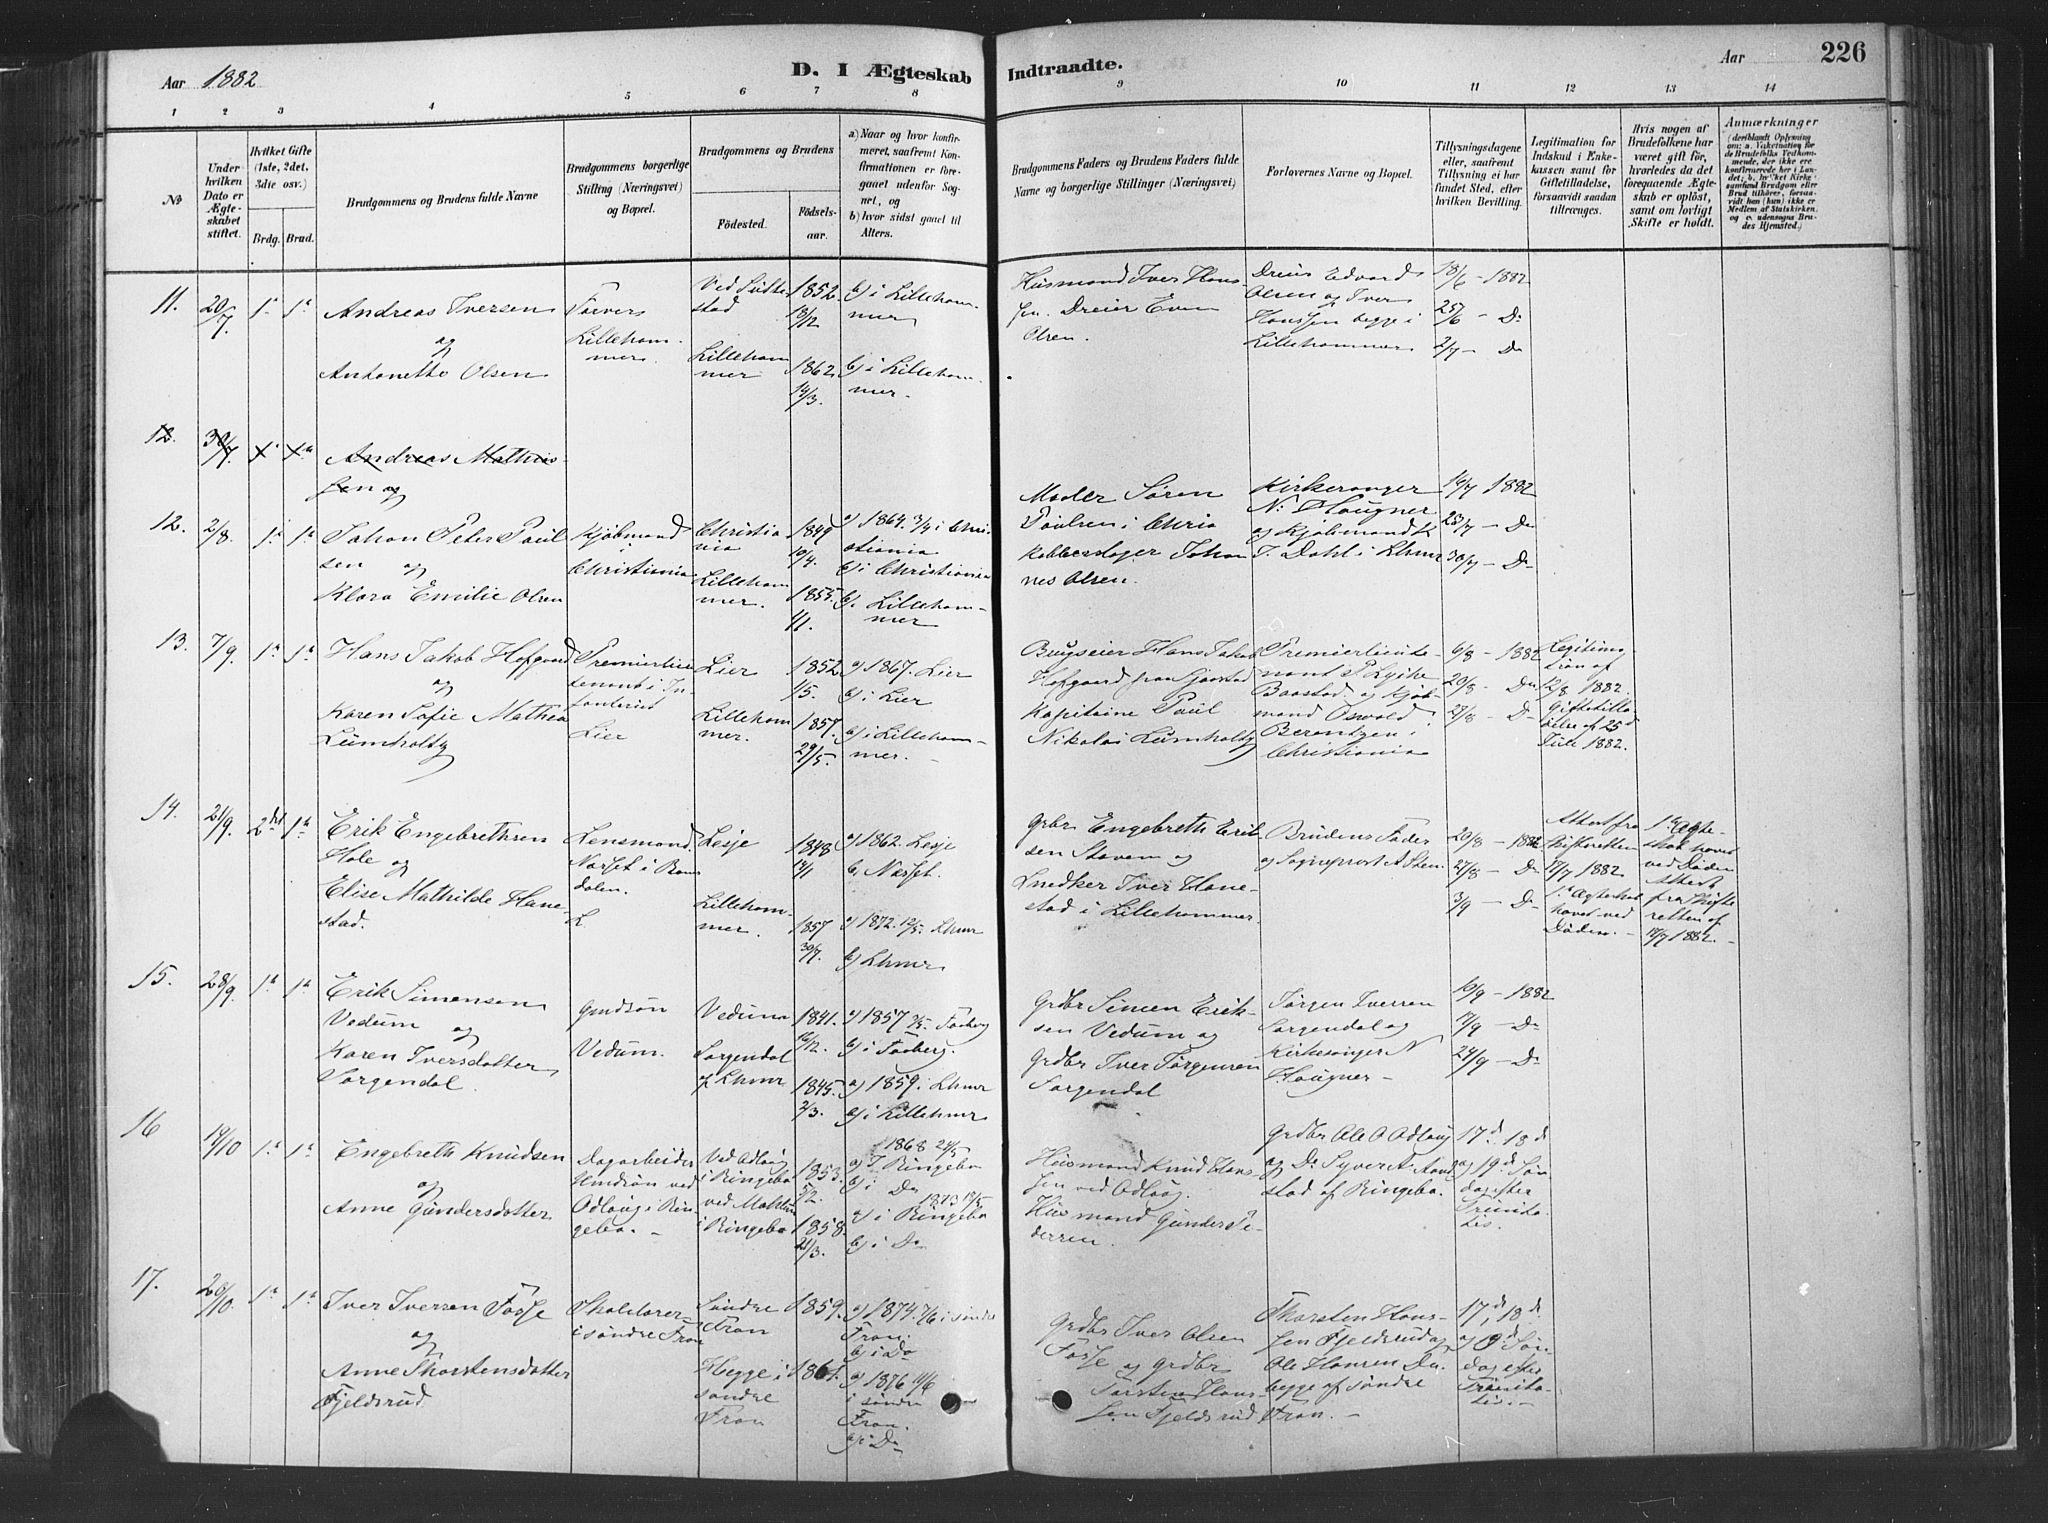 Aar 1882
D. I Ægteskab Indtraadte.
Aar
226
1 2 3 4 5 6 7 8 9 10 11 12 13 14
№
Under hvilken Dato er Ægteskabet stiftet.
Hvilket Gifte (1ste, 2det, 3die osv.)
Brdg. Brud.
Brudgommens og Brudens fulde Navne
Brudgommens borgerlige Stilling (Næringsvei) og Bopæl.
Brudgommens og Brudens
Födested.
Födselsaar.
a) Naar og hvor konfirmeret, saafremt Konfirmationen er foregaaet udenfor Sognet, og
b) hvor sidst gaaet til Alters.
Brudgommens Faders og Brudens Faders fulde Navne og borgerlige Stillinger (Næringsvei)
Forlovernes Navne og Bopæl.
Tillysningsdagene eller, saafremt Tillysning ei har fundet Sted, efter hvilken Bevilling.
Legitimation for Indskud i Enkekassen samt for Giftetilladelse, forsaavidt saadan tiltrænges.
Hvis nogen af Brudefolkene har været gift för, hvorledes da det foregaaende Ægteskab er oplöst, samt om lovligt Skifte er holdt.
Anmærkninger
11. 20/7 1ste 1ste
Andreas Iversen
og
Antonette Olsen
Farver
Lillehammer.
Lillehammer
1852 13/12
1862 14/3.
b) i Lillehammer
b) i Lillehammer.
Husmand Iver Hanssen. Dreier Even Olsen.
Dreier Edvard Olsen og Iver Hanssen begge i Lillehammer
18/6 - 1882
25/6 - Do
2/7 - Do
12. 30/7.
Andreas Mathiassen og
12. 2/8. 1ste 1ste
Johan Peter Paulsen og
Klara Emilie Olsen
Kjøbmand i Christiania
Christiania
Lillehammer.
1849 10/4.
1855. 11.
a) 1864. 3/4 i Christiania
b) i Christiania
b). Lillehammer
Maler Søren Paulsen i Chria
Kobberslager Johannes Olsen.
Kirkesanger N. Haugner og Kjøbmand
T. Dahl i Lhmr
16/7 1882
23/7 - Do
30/7 - Do
13. 7/9. 1ste 1ste
Hans Jakob Hofgaard
og
Karen Sofie Mathea Lumholtz
Premierlieutenant i Infanteriet
Lier
Lier
Lillehammer.
1852 15.
1857. 29/5.
a) 1867. Lier
b) i Lier
b) i Lillehammer.
Brugseier Hans Jakob Hofgaard fra
Kapitaine Paul Nikolai Lumholtz
Premierlieutenant P. Lyche
og Kjøbmand Oswald Berentzen i Christiania
6/8 - 1882
20/8 - Do
27/8 - Do
Legitimation af 12/8 1882.
Giftetilladelse af 25 Juli 1882.
14. 21/9. 2det 1ste
Erik Engebrethsen Hole og
Elise Mathilde Hanestad.
Lensmand. i Romsdalen.
Lesje
Lillehammer.
1848 14/1
1857 30/7.
a) 1862. Lesje
a) 1872. 12/5. Lhmr
b) Lhmr
Grbr Engebreth Eriksen Stavem og
Snedker Iver Hanestad i Lillehammer.
Brudens Fader og Sogneprest A. Sten
20/8 - 1882
27/8 - Do
3/9 - Do
Attest fra Skifteretten 18/7 1882
1ste Ægteskab hævet ved Døden. -
1ste Ægteskab hævet ved Døden Attest fra Skifteretten af 18/7 1882. -
15. 28/9. 1ste 1ste
Erik Simensen Vedum og
Karen Iversdotter Sorgendal.
Grdsøn
Vedum.
Vedum
Sorgendal af Lhmr
1841. 16/12.
1845. 2/3.
a) 1857 Faaberg
b) i Faaberg.
a) 1859. Lhmr
b) i Lillehmr
Grdbr Simen Eriksen Vedum og
Grdbr Iver Jørgensen Sorgendal
Jørgen Iversen Sorgendal og
Kirkesanger N Haugner -
10/9 - 1882
17/9 - Do
24/9 - Do
16 19/10 1ste 1ste
Engebreth Knudsen
og
Anne Gundersdotter
Dagarbeider Hmdsøn ved Odlaug i Ringebo. -
Ved Odlaug i Ringebo
i Ringebo
1853. 5/2.
1858. 21/3.
1868 24/5
a) I Ringebo
b) i Do
1873
a) i Ringebo
b) i Do
Husmand Knud Hanssen ved Odlaug.
Husmand Gunder Pedersen.
Grdbr Ole O Odlaug og Do Syver A. af Ringebo.
17d. 18d og 19d Søndag efter Trinitatis.
17. 20/10. 1ste 1ste
Iver Iversen Fosse
og
Anne Thorstensdotter Fjeldsrud
Skolelærer i søndre Fron
Søndre Fron
Hegge i søndre Fron
1859.
1861.
a) 1874. 7/6 i søndre Fron.
b) i Do
a) 1876 11/6 i søndre Fron.
b) i Do
Grdbr Iver Olsen Fosse og Grdbr Torsten Hanssen Fjeldsrud
Thorsten Hanssen Fjeldsrud og
Ole Hansen Do. begge af søndre Fron. -
17d, 18d og 19d Søndag efter Trinitatis. -